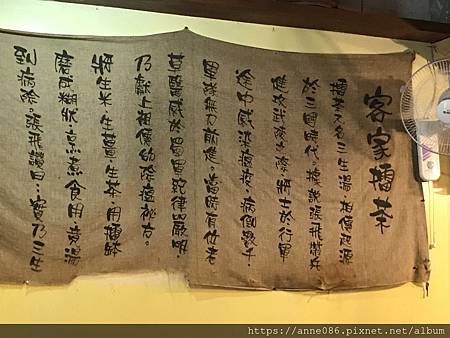 客家擂茶
擂茶又名三生湯，相傳起源
於三國年代。據說張飛帶兵
將士於行軍
途中感染瘟疫，病倒數千，
軍隊無力前進。當時有位老
草醫感於蜀軍紀律嚴明，
乃獻上祖傳幼除瘟秘方。
將生米、生薑、生茶，用擂缽
磨成糊狀，烹煮食用，竟湯
到病除。張飛讚曰：實乃三生
https://anne086.pixnet.net/album